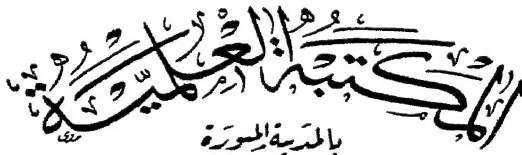 المكتبة العلمية
بالمدينة المنورة